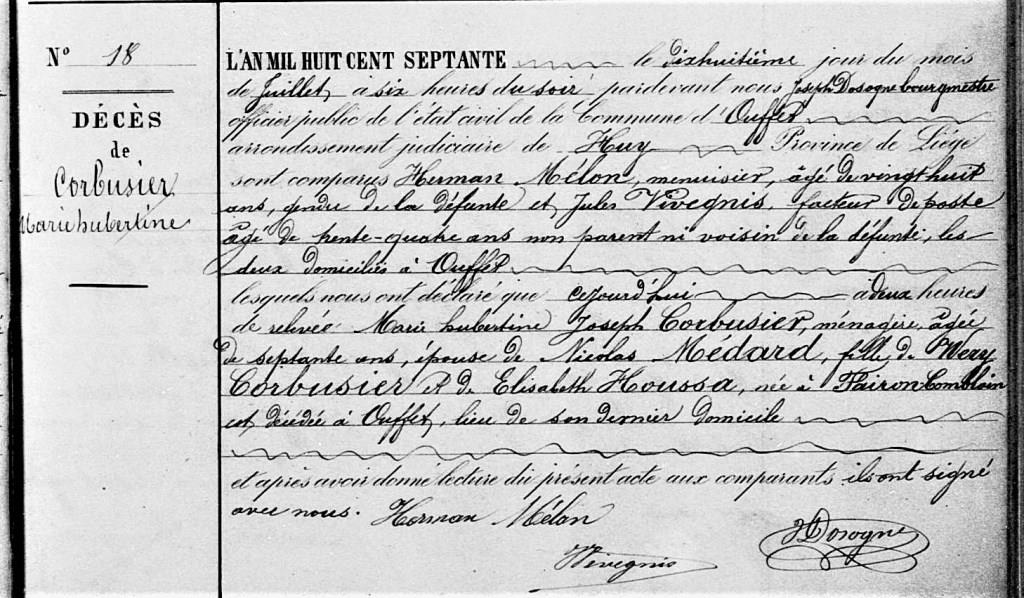 N° 18
DÉCÈS
de
Corbusier
Marie hubertine
L'AN MIL HUIT CENT SEPTANTE le dixhuitième jour du mois
de Juillet, à six heures du soir pardevant nous Joseph Dosogne bourgmestre
officier public de l'état civil de la Commune d'Ouffet
arrondissement judiciaire de Huy Province de Liége
sont comparus Herman Mélon, menuisier, âgé de vingt huit
ans, gendre de la défunte et Jules Vivegnis, facteur de poste
âgé de trente-quatre ans non parent ni voisin de la défunte, les
deux domiciliés à Ouffet
lesquels nous ont déclaré que cejourd'hui à deux heures
de relevée Marie hubertine Joseph Corbusier, ménagère, âgée
de septante ans, épouse de Nicolas Médard, fille de Wery
Corbusier et de Elisabeth Houssa, née à Fairon Comblain
est décédée à Ouffet, lieu de son dernier domicile
et après avoir donné lecture du présent acte aux comparants ils ont signé
avec nous. Herman Mélon
JDosogne
JVivegnis